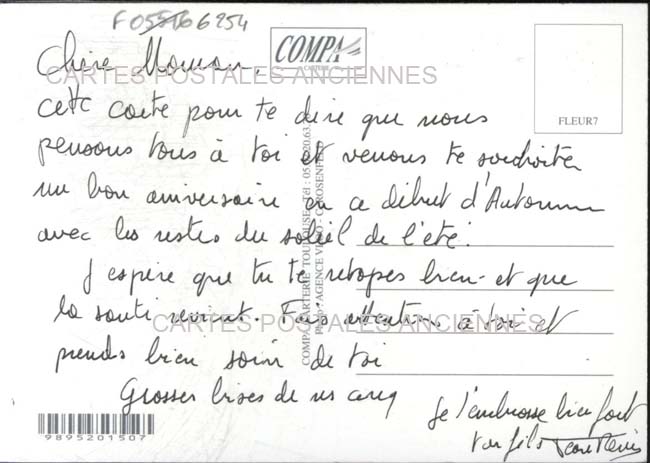 F055166254
COMPA
CARTERIE
FLEUR7
Chère Maman,
CARTES POSTALES ANCIENNES
cette carte pour te dire que nous
pensons tous à toi et venons te souhaiter
un bon anniversaire en ce début d'Automne
avec les restes du soleil de l'été.
J'espère que tu te retapes bien et que
la santé revient. Fais attention à toi et
CARTES POSTALES ANCIENNES
prends bien soin de toi
Grosses bises de nous cinq
Je t'embrasse bien fort
ton fils
COMPA CARTERIE TOULOUSE - Tél : 05
PHOTO : AGENCE VISIO
9895201507